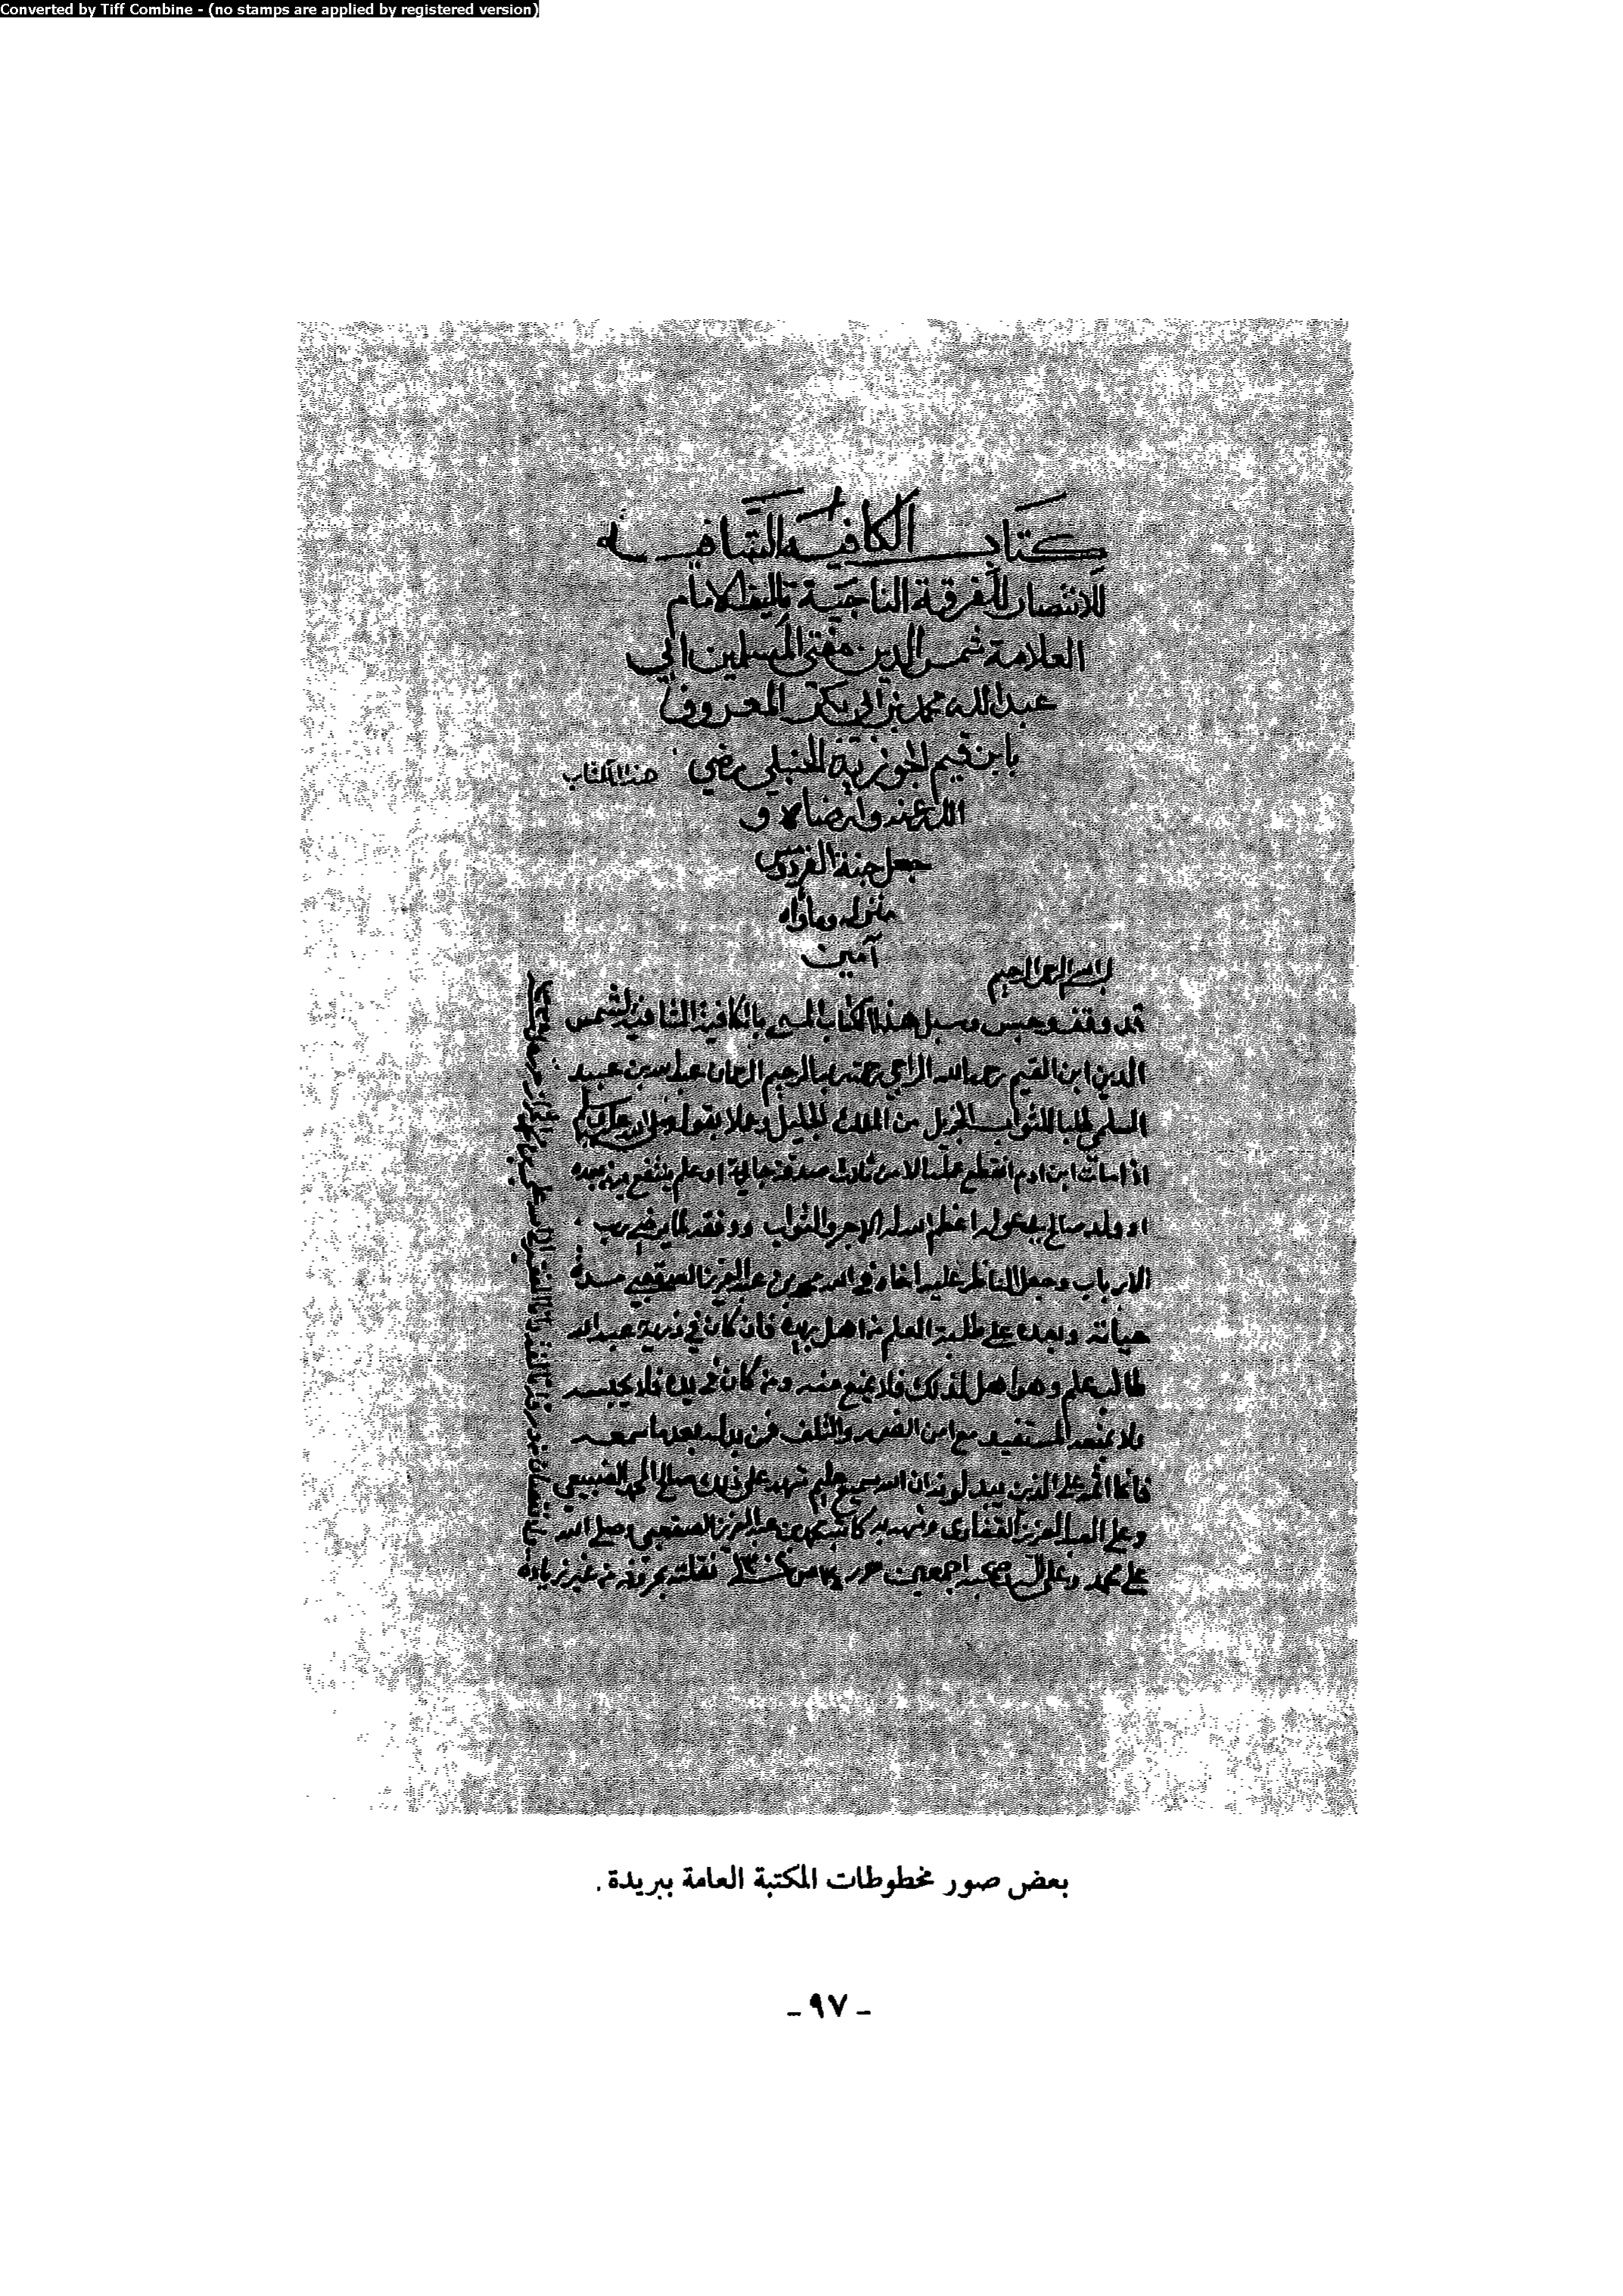 Converted by Tiff Combine - (no stamps are applied by registered version)
كتاب الكافية الشافيه
للانتصار للفرقة الناجية تأليف الامام
العلامة شمس الدين مفتي المسلمين ابي
عبد الله محمد بن ابي بكر المعروف
بابن قيم الجوزية الحنبلي رضي
هذا الكتاب
الله عنه وارضاه و
جعل جنة الفردوس
منزله ومأواه
آمين
بسم الله الرحمن الرحيم
قد وقف وحبس وسبل هذا الكتاب المسمى بالكافية الشافية لشمس
الدين ابن القيم رحمه الله الراجي رحمة ربه الرحيم عبد الله بن عبيد
السلمي طلبا للثواب الجزيل من الملك الجليل وعملا بقوله صلى الله عليه وسلم
اذا مات ابن ادم انقطع عمله الا من ثلاث صدقة جارية او علم ينتفع به من بعده
او ولد صالح يدعو له اعظم الله له الاجر والثواب ووفقه لما يرضي رب
الارباب وجعل الناظر عليه اخاه في الله محمد بن عبد العزيز الصقعبي مدة
حياته وبعده على طلبة العلم من اهل بريدة فان كان في ذرية عبد الله
طالب علم وهو اهل لذلك فلا يمنع منه ومن كان في يده فلا يحبسه
ولا يمنعه المستفيد مع امن الضرر والتلف فمن بدله بعد ما سمعه
فانما اثمه على الذين يبدلونه ان الله سميع عليم شهد على ذلك صالح المحمد
وعلي العبد العزيز وشهد به كاتبه محمد بن عبد العزيز الصقعبي وصلى الله
على محمد وعلى اله وصحبه اجمعين نقلته بحروفه من غير زيادة
ولا نقصان
بعض صور مخطوطات المكتبة العامة ببريدة .
- ٩٧ -